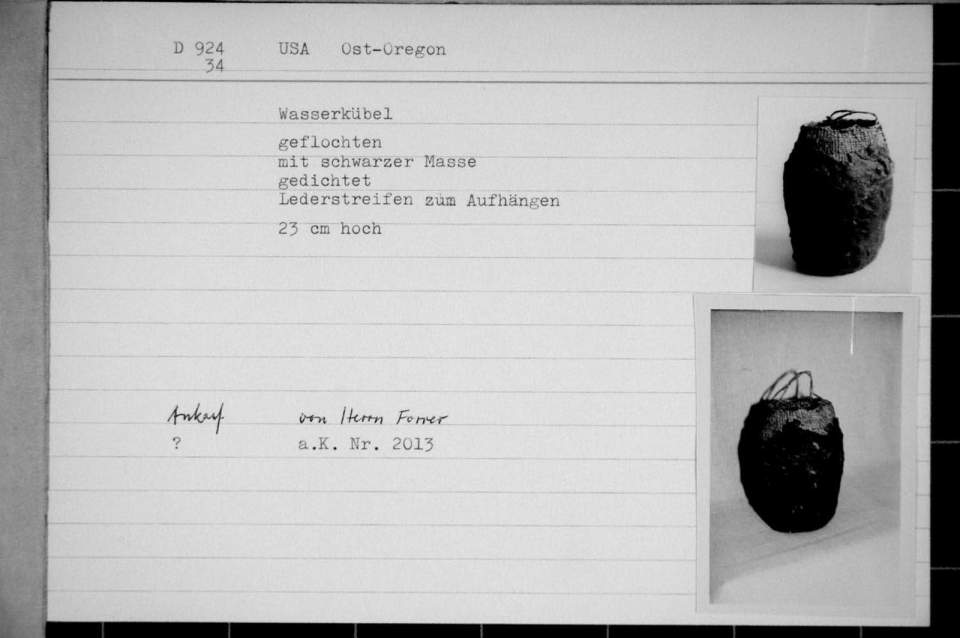 D 924 USA Ost-Oregon
34
Wasserkübel
geflochten
mit schwarzer Masse
gedichtet
Lederstreifen zum Aufhängen
23 cm hoch
Ankauf von Herrn Forrer
? a.K. Nr. 2013